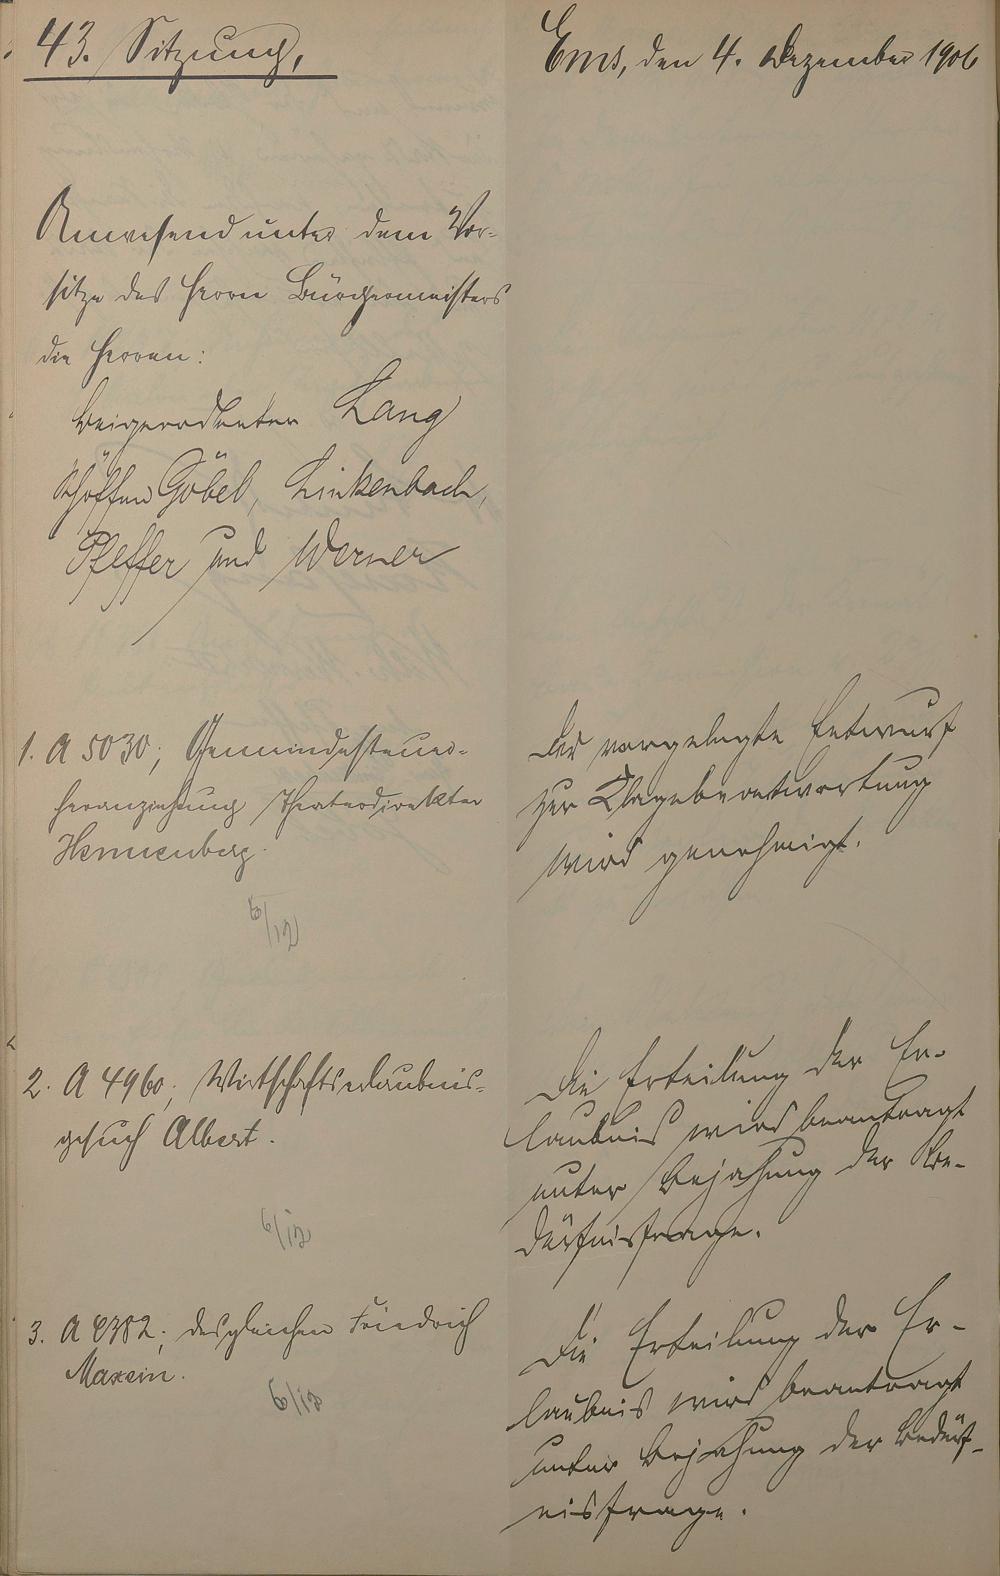 43. Sitzung,
Ems, den 4. Dezember 1906
Anwesend unter dem Vor-
sitze des Herrn Bürgermeisters
die Herren:
Beigeordneter Lang
Schöffen Göbel, Linkenbach,
Pfeffer und Werner
1. A 5030; Gemeindesteuer-
heranziehung Theaterdirektor
Hermenberg.
6/12
Der vorgelegte Entwurf
zur Klagebeantwortung
wird genehmigt.
2. A 4960; Wirtschaftserlaubnis-
gesuch Albert.
6/12
Die Erteilung der Er-
laubnis wird beantragt
unter Bejahung der Be-
dürfnisfrage.
3. A 4382; desgleichen Friedrich
Maxein.
6/12
Die Erteilung der Er-
laubnis wird beantragt
unter Bejahung der Bedürf-
nisfrage.